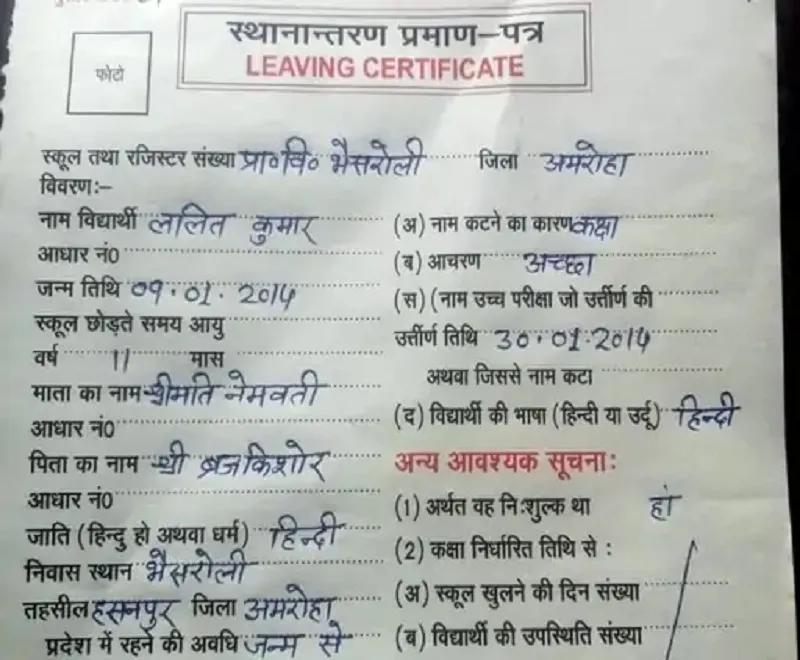 स्थानान्तरण प्रमाण–पत्र
LEAVING CERTIFICATE
फोटो
स्कूल तथा रजिस्टर संख्या प्रा०वि० भैसरोली जिला अमरोहा
विवरण:–
नाम विद्यार्थी ललित कुमार
आधार नं0
जन्म तिथि 09.01.2014
स्कूल छोड़ते समय आयु
वर्ष 11 मास
माता का नाम श्रीमति नेमवती
आधार नं0
पिता का नाम श्री ब्रजकिशोर
आधार नं0
जाति (हिन्दु हो अथवा धर्म) हिन्दी
निवास स्थान भैसरोली
तहसील हसनपुर जिला अमरोहा
प्रदेश में रहने की अवधि जन्म से
(अ) नाम कटने का कारण कक्षा
(ब) आचरण अच्छा
(स) (नाम उच्च परीक्षा जो उर्त्तीर्ण की
उर्त्तीर्ण तिथि 30.01.2014
अथवा जिससे नाम कटा
(द) विद्यार्थी की भाषा (हिन्दी या उर्दू) हिन्दी
अन्य आवश्यक सूचना:
(1) अर्थत वह नि:शुल्क था हां
(2) कक्षा निर्धारित तिथि से :
(अ) स्कूल खुलने की दिन संख्या
(ब) विद्यार्थी की उपस्थिति संख्या